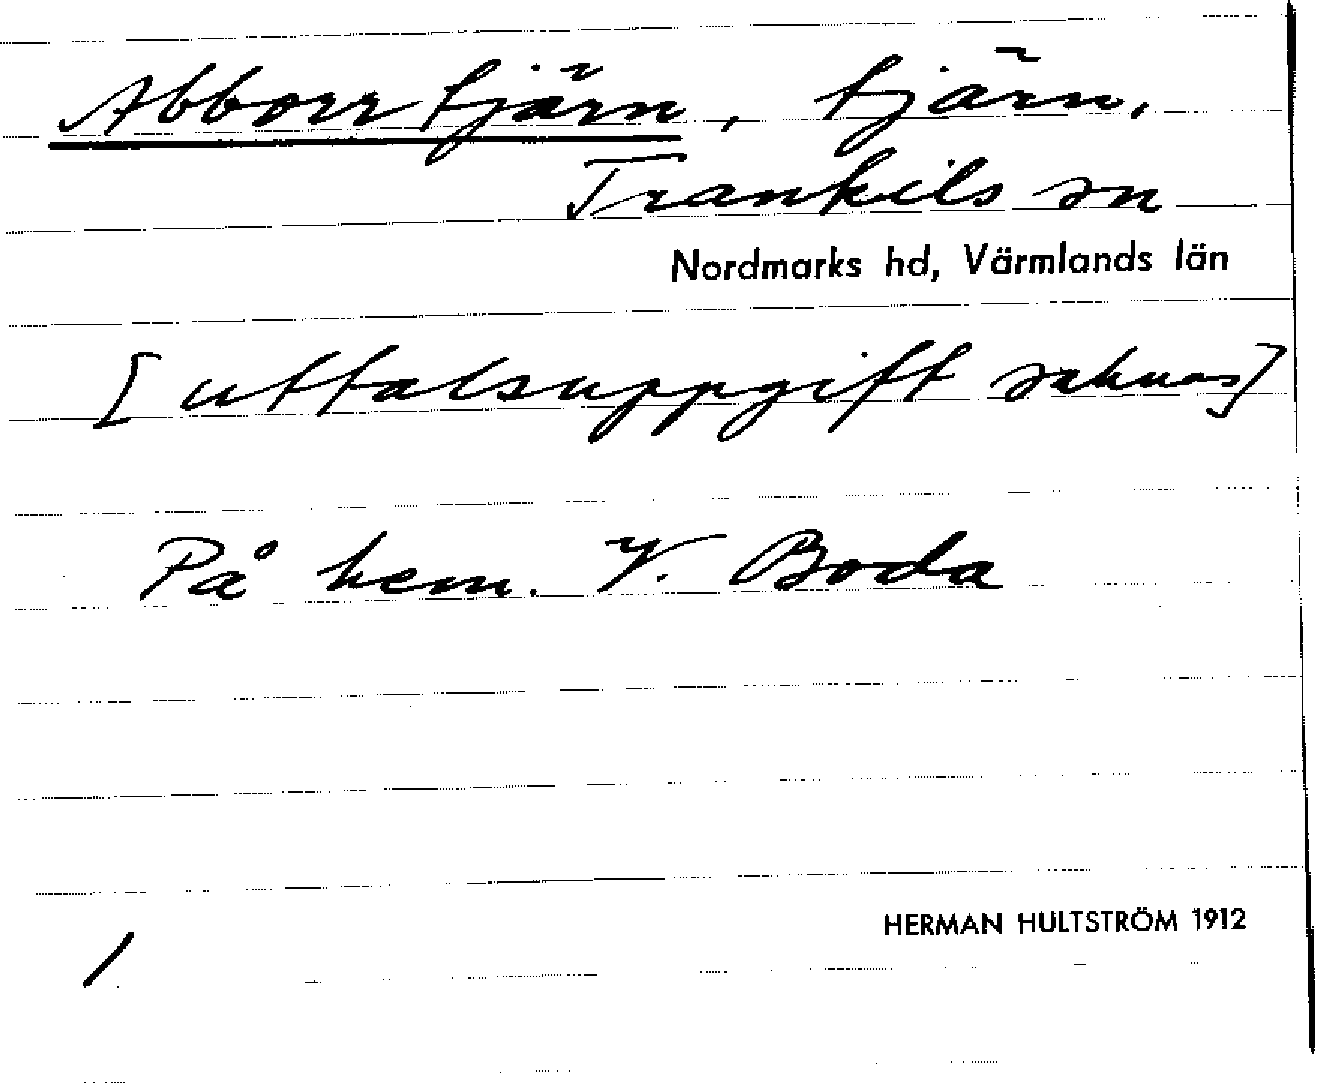 Abborrtjärn, tjärn,
Trankils sn
Nordmarks hd, Värmlands län
[uttalsuppgift saknas]
På hem. V. Boda
HERMAN HULTSTRÖM 1912
/